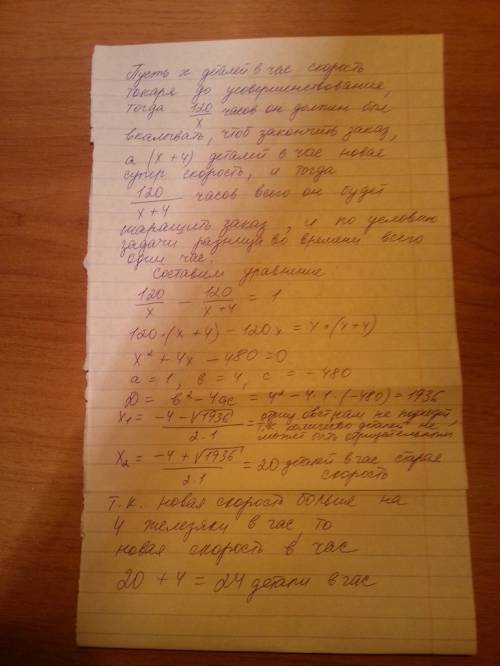 Пусть x деталей в час скорость
токаря до усовершенствования,
тогда 120/x часов он должен был
вкалывать, чтоб закончить заказ,
а (x+4) деталей в час новая
супер скорость, и тогда
120/(x+4) часов всего он будет
шарашить заказ, и по условию
задачи разница во времени всего
один час.
Составим уравнение
120/x − 120/(x+4) = 1
120·(x+4) − 120x = x·(x+4)
x² + 4x − 480 = 0
a = 1, b = 4, c = −480
D = b² − 4ac = 4² − 4·1·(−480) = 1936
x₁ = (−4 − √1936)/(2·1) = нам не подходит
т.к. количество деталей не
может быть отрицательным
x₂ = (−4 + √1936)/(2·1) = 20 деталей в час старая
скорость
т.к. новая скорость больше на
4 железяки в час, то
новая скорость в час
20 + 4 = 24 детали в час